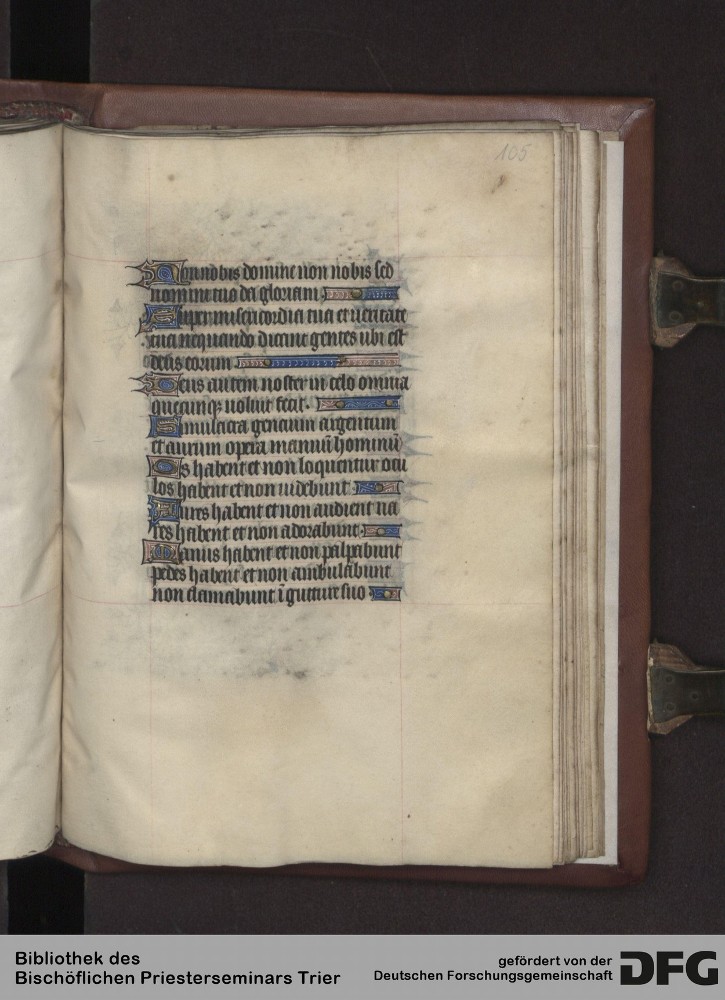 105
Non nobis domine non nobis sed
nomini tuo da gloriam
Super misericordia tua et ueritate
tua nequando dicant gentes ubi est
deus eorum
Deus autem noster in celo omnia
quecunqz uoluit fecit.
Simulacra gencium argentum
et aurum opera manuū hominū
Os habent et non loquentur ocu
los habent et non uidebunt
Aures habent et non audient na
res habent et non adorabunt
Manus habent et non palpabunt
pedes habent et non ambulabunt
non clamabunt ī gutture suo
Bibliothek des
Bischöflichen Priesterseminars Trier
gefördert von der
Deutschen Forschungsgemeinschaft
DFG